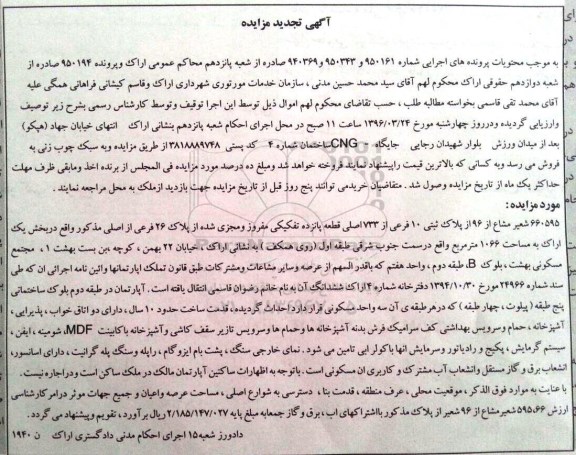 آگهی تجدید مزایده
به موجب محتویات پرونده های اجرایی شماره ۹۵۰۱۶۱ و ۹۵۰۳۴۳ و ۹۴۰۳۶۹ صادره از شعبه پانزدهم محاکم عمومی اراک وپرونده ۹۵۰۱۹۴ صادره از
شعبه دوازدهم حقوقی اراک محکوم لهم آقای سید محمد حسین مدنی ، سازمان خدمات موتوری شهرداری اراک وقاسم کیشانی فراهانی همگی علیه
آقای محمد تقی قاسمی بخواسته مطالبه طلب ، حسب تقاضای محکوم لهم اموال ذیل توسط این اجرا توقیف وتوسط کارشناس رسمی بشرح زیر توصیف
وارزیابی گردیده ودرروز چهارشنبه مورخ ۱۳۹۶/۰۳/۲۴ ساعت ۱۱ صبح در محل اجرای احکام شعبه پانزدهم بنشانی اراک انتهای خیابان جهاد (هپکو)
بعد از میدان ورزش بلوار شهیدان رجایی جایگاه CNG ساختمان شماره ۴ کد پستی ۳۸۱۸۸۸۹۷۴۸ از طریق مزایده وبه سبک چوب زنی به
فروش می رسد وبه کسانی که بالاترین قیمت راپیشنهاد نمایند فروخته خواهد شد ومبلغ ده درصد مورد مزایده فی المجلس از برنده اخذ ومابقی ظرف مهلت
حداکثر یک ماه از تاریخ مزایده وصول شد . متقاضیان خریدمی توانند پنج روز قبل از تاریخ مزایده جهت بازدید ازملک به محل مراجعه نمایند .
مورد مزایده :
۶۶۰۵۹۵ شعیر مشاع از ۹۶ از پلاک ثبتی ۱۰ فرعی از ۷۳۳ اصلی قطعه پانزده تفکیکی مفروز ومجزی شده از پلاک ۲۶ فرعی از اصلی مذکور واقع دربخش یک
اراک به مساحت ۱۰۶۶ مترمربع واقع درسمت جنوب شرقی طبقه اول (روی همکف ) به نشانی اراک ، خیابان ۲۲ بهمن ، کوچه ،بن بست بهشت ۱ ، مجتمع
مسکونی بهشت ، بلوک B، طبقه دوم ، واحد هفتم که باقدر السهم از عرصه وسایر مشاعات ومشترکات طبق قانون تملک اپارتمانها وائین نامه اجرائی ان که طی
سند شماره ۲۴۹۶۶ مورخ ۱۳۹۴/۱۰/۳۰ دفترخانه شماره ۴ اراک ششدانگ آن به نام خانم رضوان قاسمی انتقال یافته است . آپارتمان در طبقه دوم بلوک ساختمانی
پنج طبقه ( پیلوت ، چهار طبقه ) که درهر طبقه ی آن سه واحد مسکونی قرار دارد احداث گردیده ، قدمت ساخت حدود ۱۰ سال ، دارای دو اتاق خواب ، پذیرایی ،
آشپزخانه ، حمام وسرویس بهداشتی کف سرامیک فرش بدنه آشپزخانه ها وحمام ها وسرویس تازیر سقف کاشی وآشپزخانه باکابینت MDF، شومینه ، ایفن ،
سیستم گرمایش ، پکیج و رادیاتور وسرمایش انها باکولر ابی تامین می شود . نمای خارجی سنگ ، پشت بام ایزوگام ، راپله وسنگ پله گرانیت ، دارای اسانسور،
انشعاب برق و گاز مستقل وانشعاب آب مشترک و کاربری ان مسکونی است . باتوجه به اظهارات ساکنین آپارتمان مالک در ملک ساکن است ودراجاره نیست .
با عنایت به موارد فوق الذکر ، موقعیت محلی ، عرف منطقه ، قدمت بنا ، دسترسی به شوارع اصلی ، مساحت عرصه واعیان و جمیع جهات موثر درامر کارشناسی
ارزش ۵۹۵،۶۶ شعیر مشاع از ۹۶ شعیر از پلاک مذکور بااشتراکهای اب ، برق وگاز جمعابه مبلغ پایه ۲/۱۸۵/۱۴۷/۰۲۷ ریال برآورد ، تقویم وپیشنهاد می گردد .
دادورز شعبه ۱۵ اجرای احکام مدنی دادگستری اراک ن ۱۹۴۰